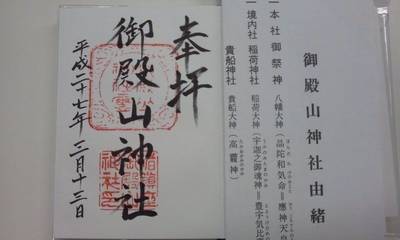 奉拝
御殿山神社
平成二十七年三月十三日
御殿山神社由緒
一本社御祭神
八幡大神(品陀和気命=應神天皇
一境内社
稲荷神社
稲荷大神(宇迦之御魂神=豊宇気比
貴船神社
貴船大神(高龗神)